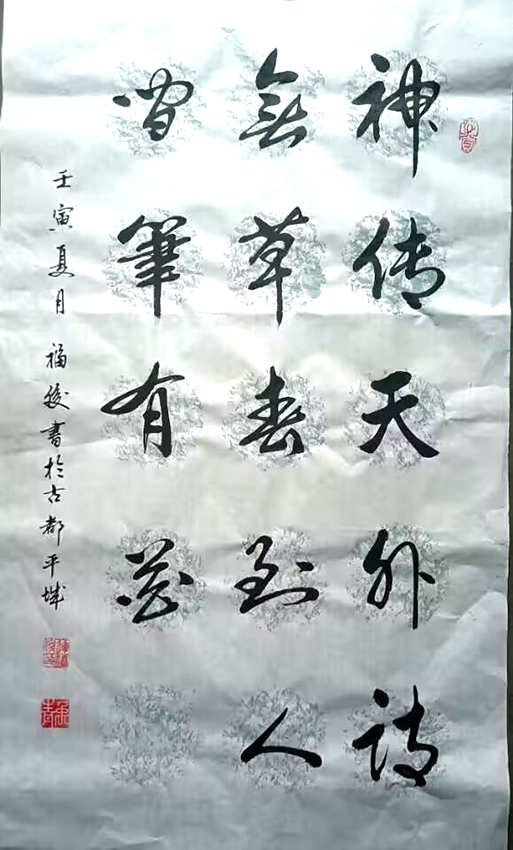 神传天外诗
無草春到人
间筆有花
壬寅夏月 福書於古都平城